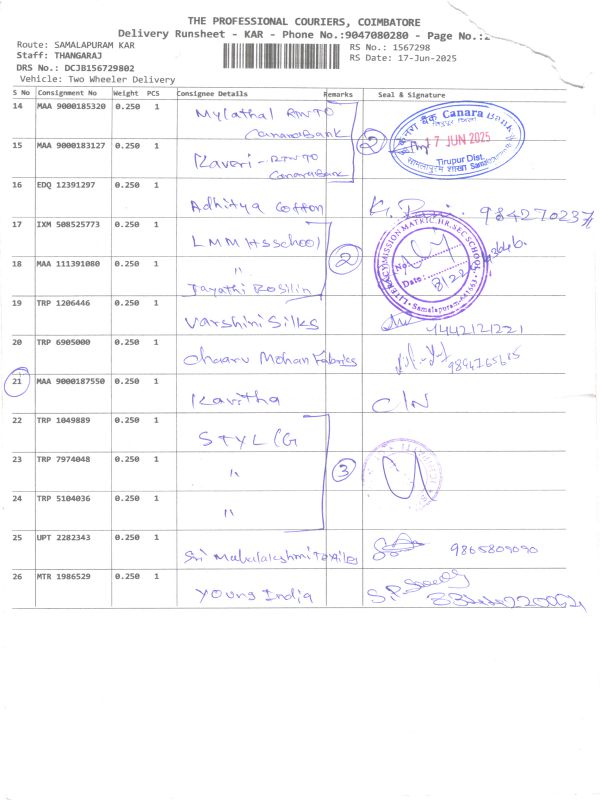 THE PROFESSIONAL COURIERS, COIMBATORE
Delivery Runsheet - KAR - Phone No.:9047080280 - Page No.:2
Route: SAMALAPURAM KAR
RS No.: 1567298
Staff: THANGARAJ
RS Date: 17-Jun-2025
DRS No.: DCJB156729802
Vehicle: Two Wheeler Delivery
S No Consignment No Weight PCS Consignee Details Remarks Seal & Signature
14 MAA 9000185320 0.250 1 Mylathal RTN TO
Canara Bank
15 MAA 9000183127 0.250 1 Kaveri - RTN TO
Canara Bank
2
Canara Bank
17 JUN 2025
Tirupur Dist.
16 EDQ 12391297 0.250 1 Adhitya Cotton
984270237
17 IXM 508525773 0.250 1 LMM HSSchool
18 MAA 111391080 0.250 1 "
Jayathi Rosilin
2
LITERACY MISSION MATRIC HR. SEC SCHOOL
No:
Date:
Samalapuram
19 TRP 1206446 0.250 1 Varshini Silks
20 TRP 6905000 0.250 1 Chaaru Mohan Fabrics
21 MAA 9000187550 0.250 1 Kavitha C/N
22 TRP 1049889 0.250 1
23 TRP 7974048 0.250 1 "
3
24 TRP 5104036 0.250 1 "
25 UPT 2282343 0.250 1 Sri Mahalakshmi Textiles
9865809090
26 MTR 1986529 0.250 1 Young India